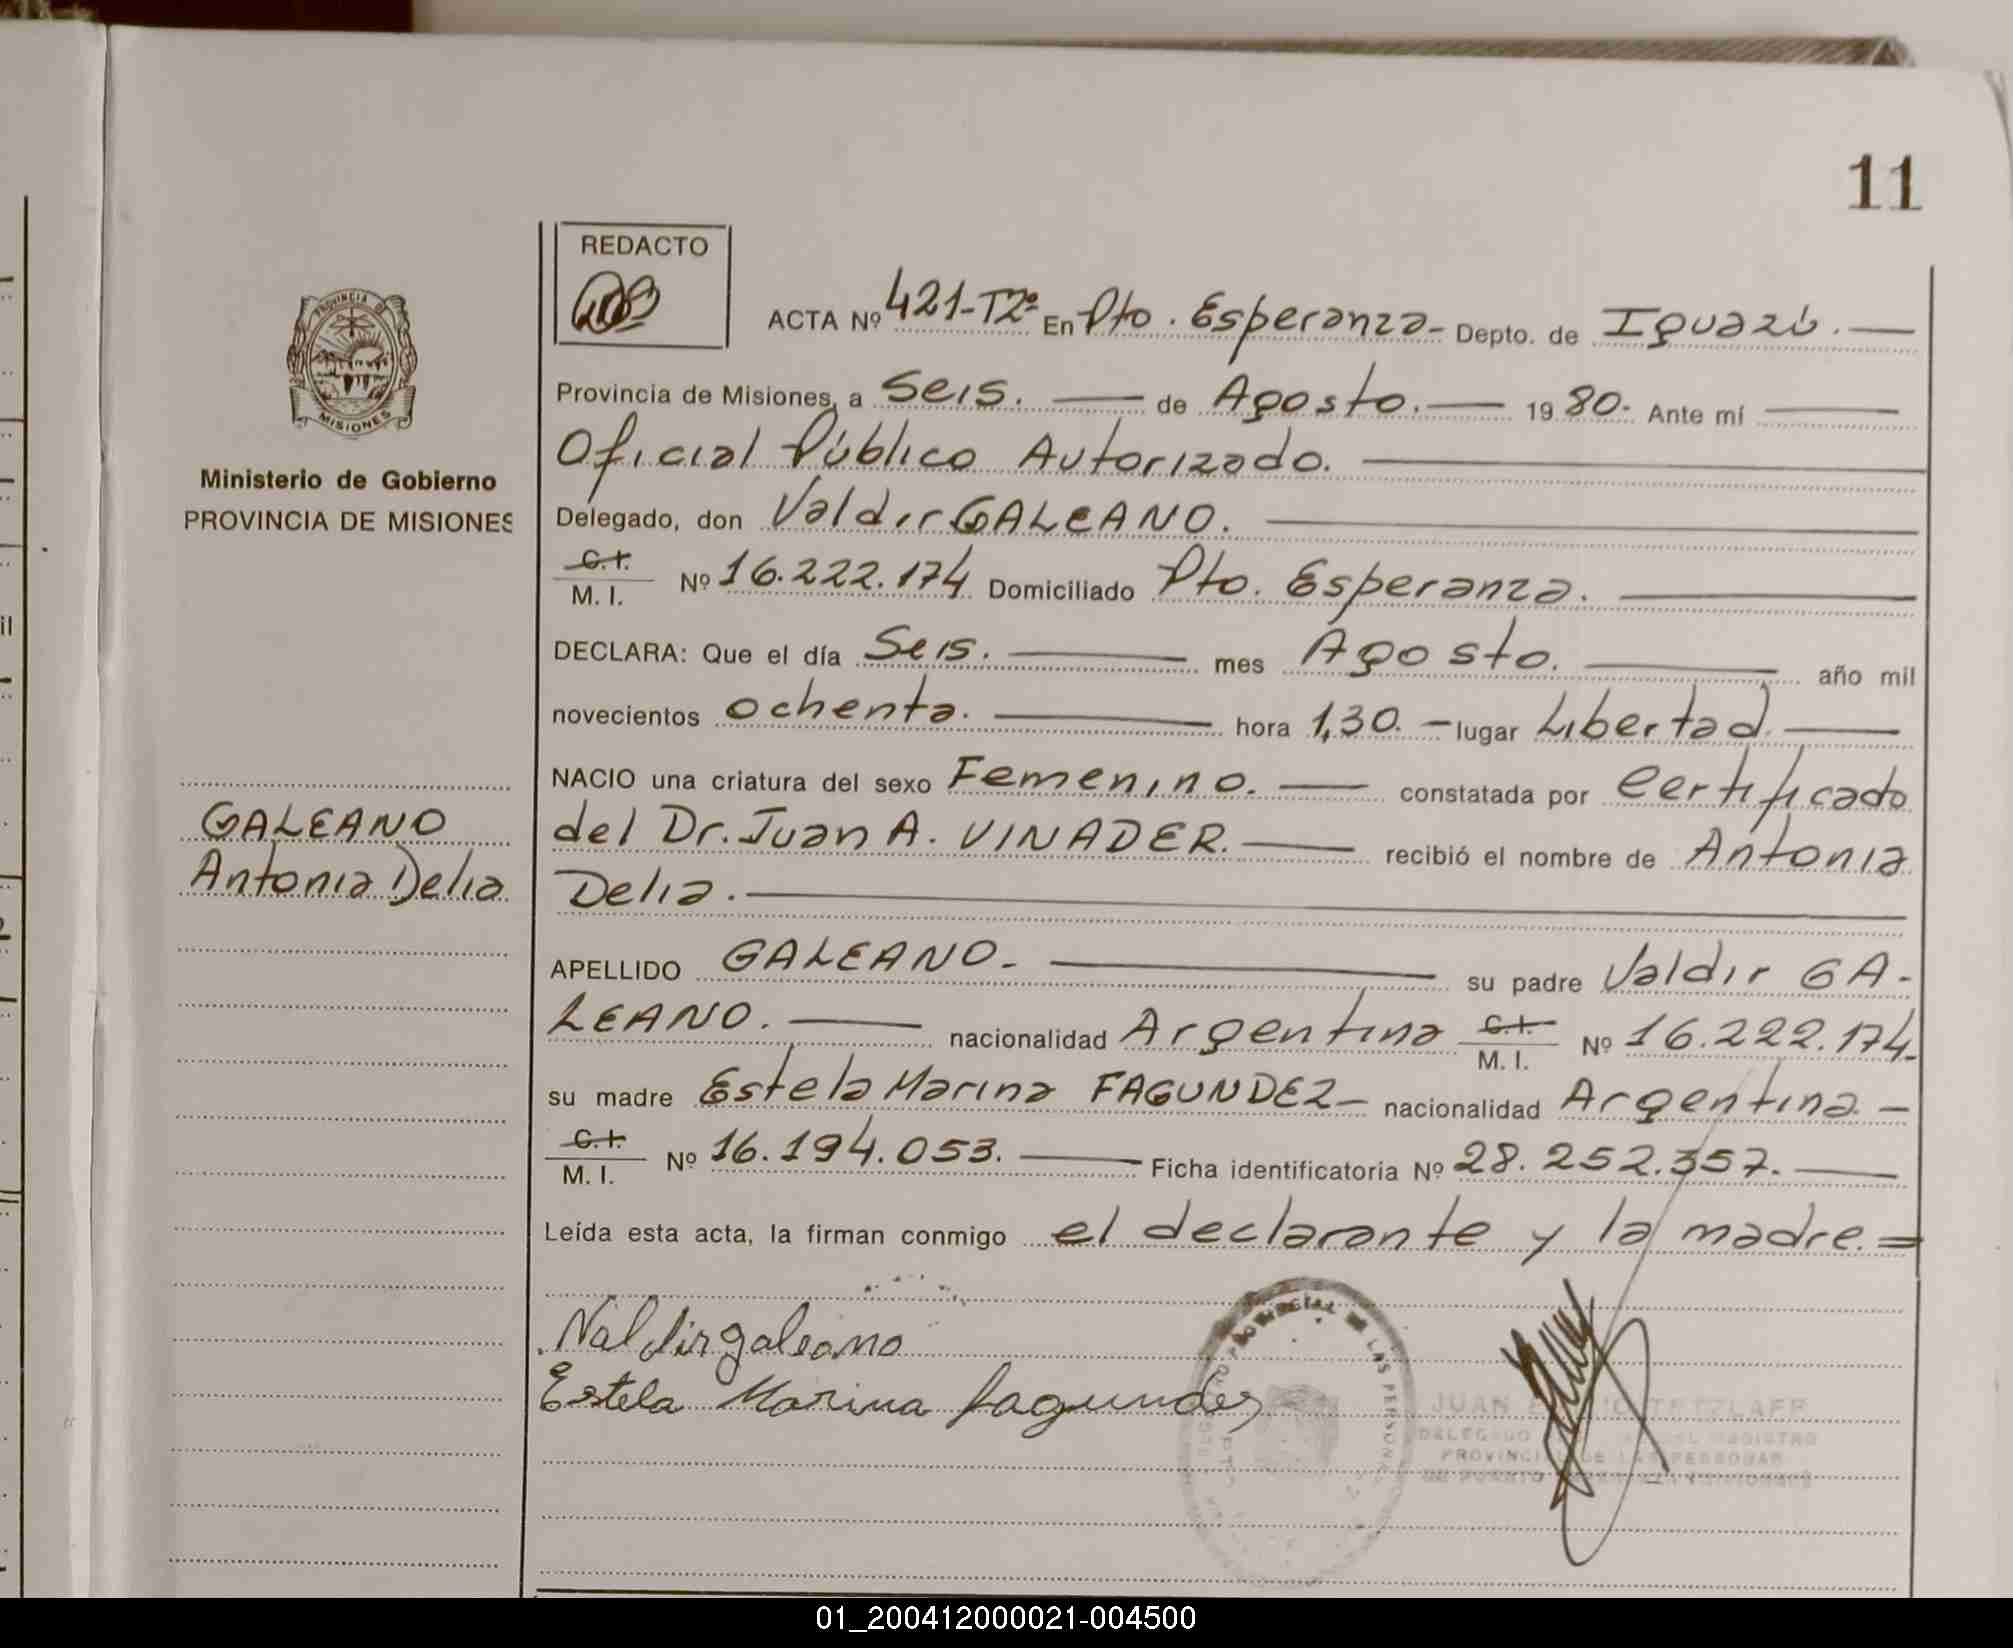 11
REDACTO
ACTA Nº 421-T2º En Pto. Esperanza- Depto. de Iguazú.
PROVINCIA DE
MISIONES
Provincia de Misiones, a Seis. de Agosto. 1980.- Ante mí
Oficial Público Autorizado.
Ministerio de Gobierno
PROVINCIA DE MISIONES
Delegado, don Valdir GALEANO.
C.I.
M. I. Nº 16.222.174 Domiciliado Pto. Esperanza.
DECLARA: Que el día Seis. mes Agosto. año mil
novecientos ochenta. hora 1,30. - lugar Libertad.
NACIO una criatura del sexo Femenino. constatada por Certificado
GALEANO
del Dr. Juan A. VINADER. recibió el nombre de Antonia
Antonia Delia
Delia.
APELLIDO GALEANO.- su padre Valdir GA-
LEANO. nacionalidad Argentina C.I. M. I. Nº 16.222.174-
su madre Estela Marina FAGUNDEZ- nacionalidad Argentina.-
C.I.
M. I. Nº 16.194.053. Ficha identificatoria Nº 28.252.357.
Leída esta acta, la firman conmigo el declarante y la madre.=
Valdir galeano
Estela Marina fagundez
PROVINCIAL DE LAS PERSONAS
JUAN TETZLAFF
DELEGADO REGISTRO
PROVINCIAL DE LAS PERSONAS
DE PUERTO MISIONES
01_200412000021-004500